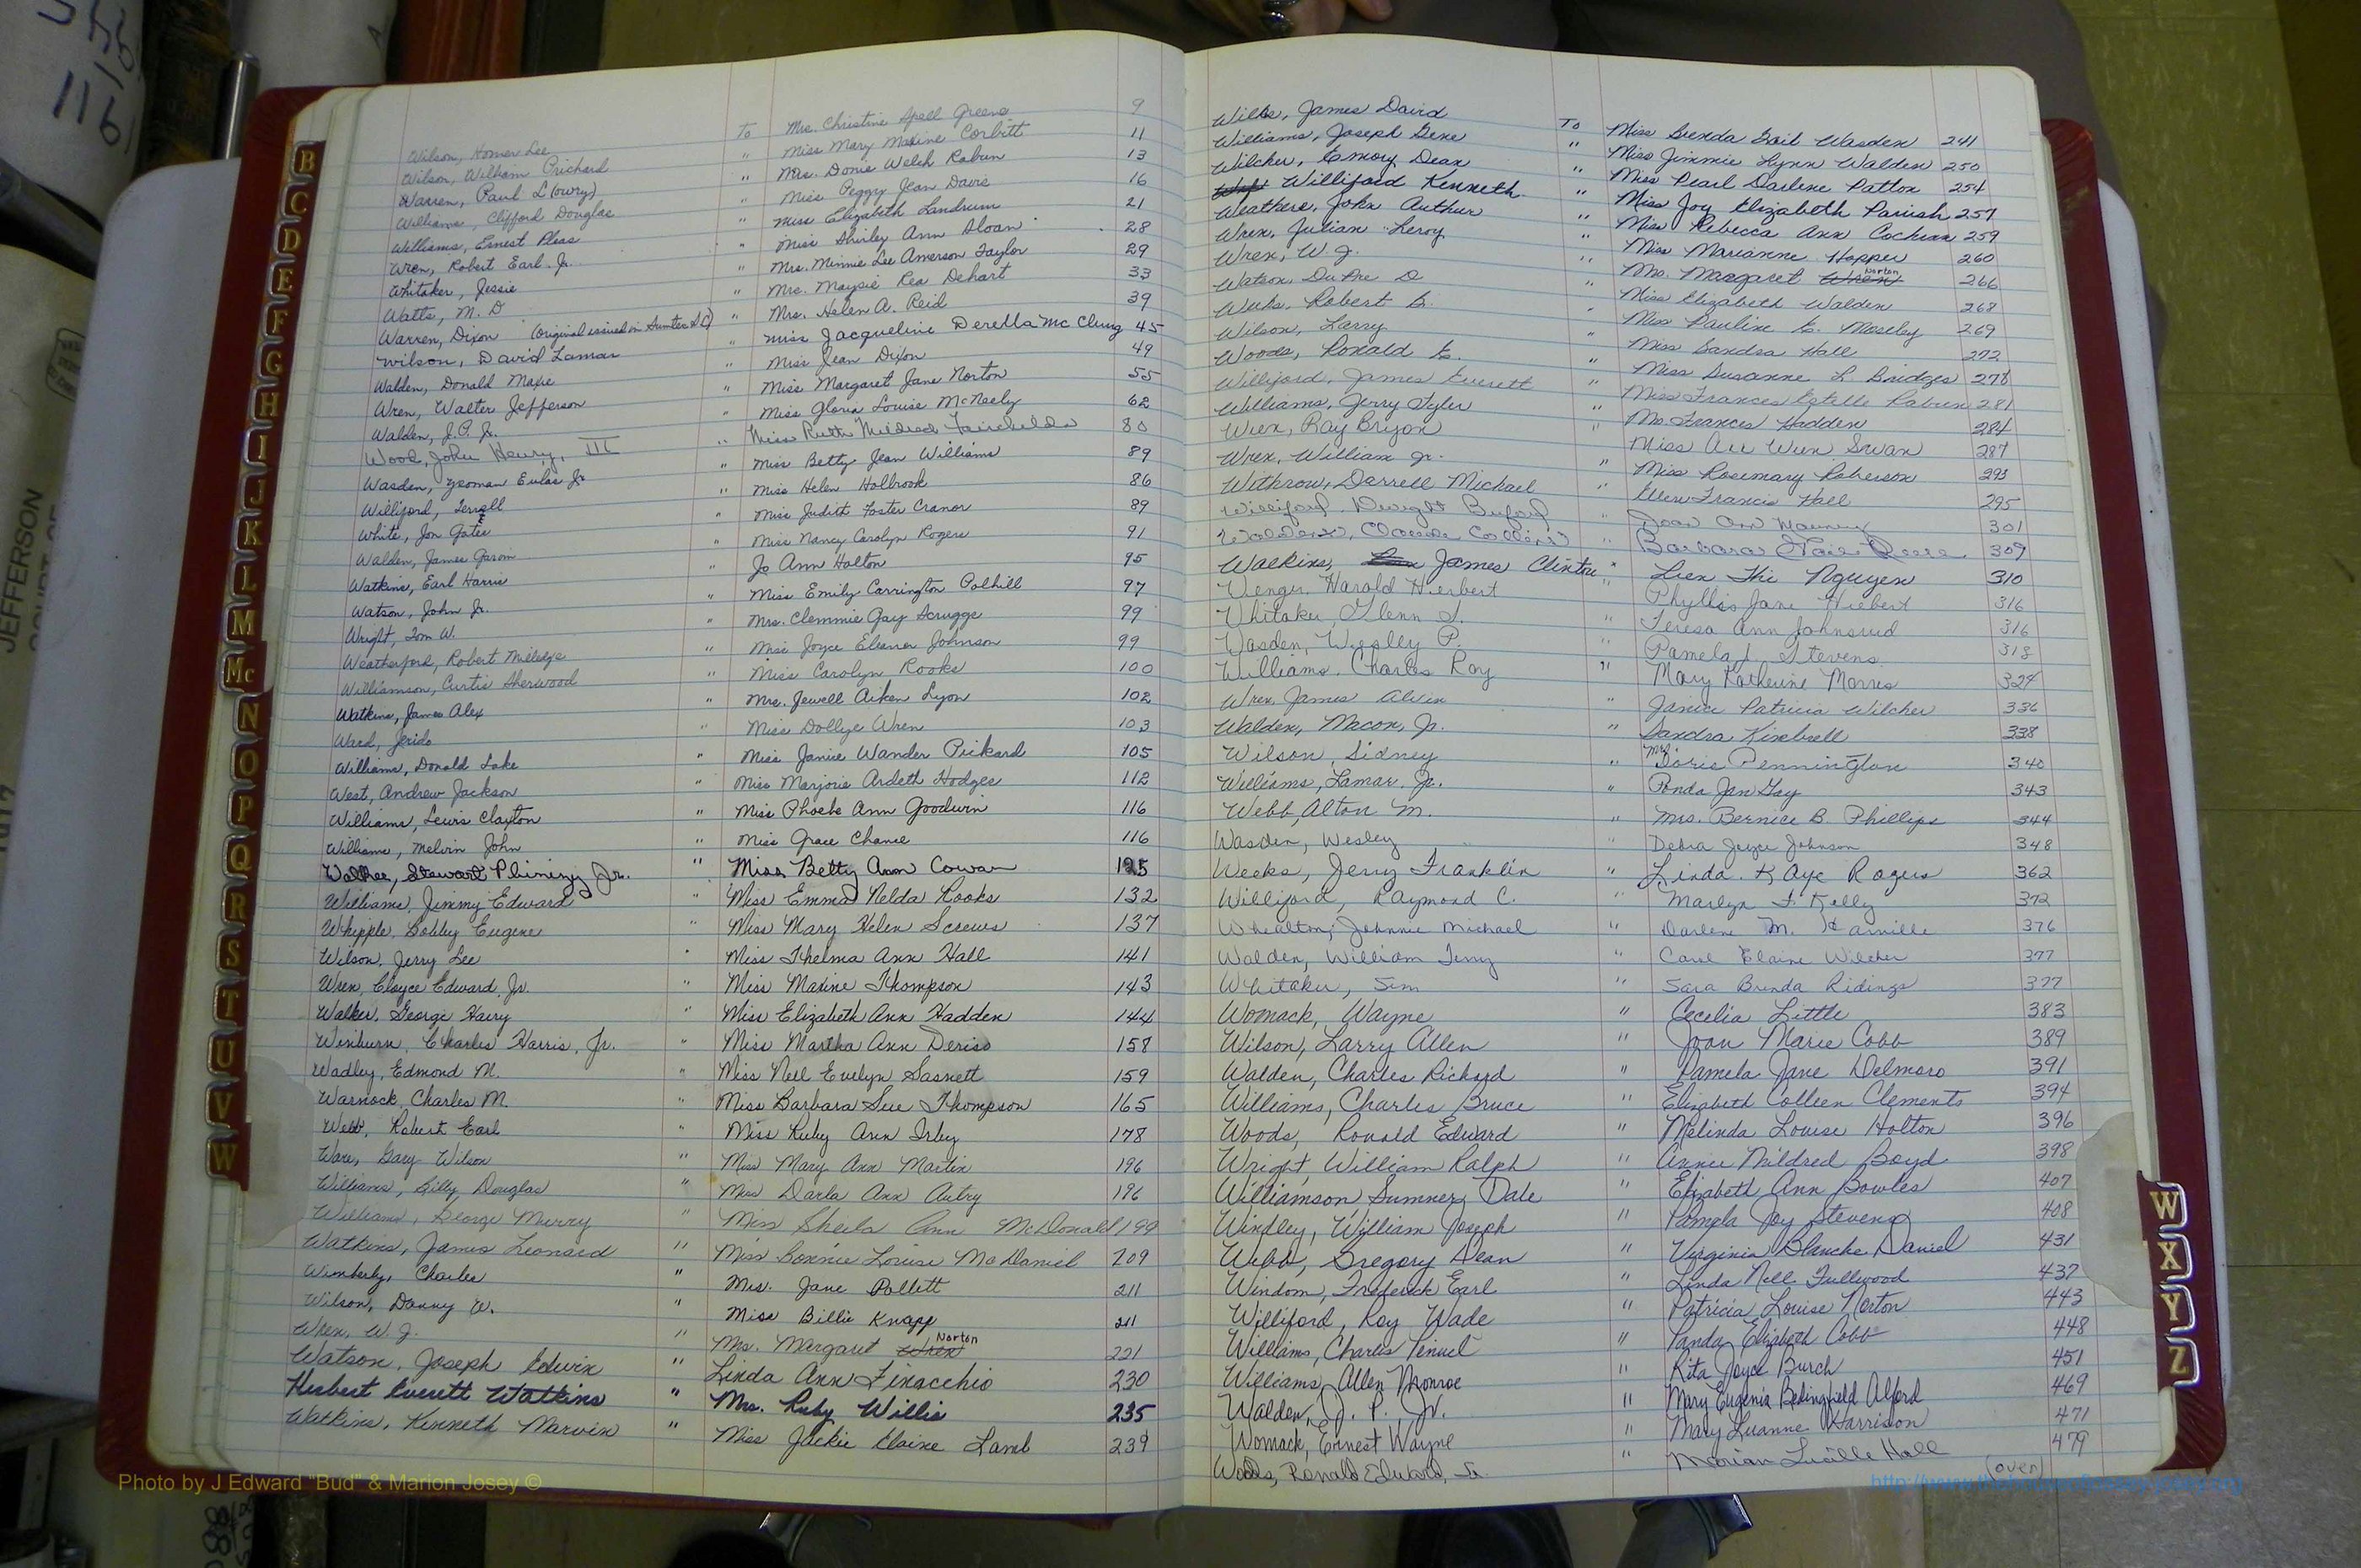 Wilson, Homer Lee To Mrs. Christine Spell Greene 9
Wilson, William Prichard " Miss Mary Maxine Corbitt 11
Warren, Paul L(owry) " Mrs. Donie Welch Rabun 13
Williams, Clifford Douglas " Miss Peggy Jean Davis 16
Williams, Ernest Pleas " Miss Elizabeth Landrum 21
Wren, Robert Earl Jr. " Miss Shirley Ann Sloan 28
Whitaker, Jessie " Mrs. Minnie Lee Amerson Taylor 29
Watts, M. D " Mrs. Maysie Rea Dehart 33
Warren, Dixon (Original issued in Sumter S.C) " Mrs. Helen A. Reid 39
Wilson, David Lamar " Miss Jacqueline Derella McClung 45
Walden, Donald Maxie " Miss Jean Dixon 49
Wren, Walter Jefferson " Miss Margaret Jane Norton 55
Walden, J.P. Jr. " Miss Gloria Louise McNeely 62
Wood, John Henry, III " Miss Ruth Mildred Fairchilds 80
Wasden, Yeoman Eulas Jr " Miss Betty Jean Williams 89
Williford, Terrell " Miss Helen Holbrook 86
White, Jon Gates " Miss Judith Foster Cranor 89
Walden, James Garvin " Miss Nancy Carolyn Rogers 91
Watkins, Earl Harris " Jo Ann Holton 95
Watson, John Jr. " Miss Emily Carrington Polhill 97
Wright, Tom W. " Mrs. Clemmie Gay Scruggs 99
Weatherford, Robert Milledge " Miss Joyce Eleanor Johnson 99
Williamson, Curtis Sherwood " Miss Carolyn Rooks 100
Watkins, James Alex " Mrs. Jewell Aiken Lyon 102
Ward, Jerido " Miss Dollye Wren 103
Williams, Donald Lake " Miss Janice Wander Prickard 105
West, Andrew Jackson " Miss Marjorie Ardeth Hodges 112
Williams, Lewis Claxton " Miss Phoebe Ann Goodwin 116
Williams, Melvin John " Miss Grace Chance 116
Walker, Stewart Plininy Jr. " Miss Betty Ann Cowan 125
Williams, Jimmy Edward " Miss Emma Nelda Rooks 132
Whipple, Bobby Eugene " Miss Mary Helen Screws 137
Wilson, Jerry Lee " Miss Thelma Ann Hall 141
Wren, Cloyce Edward, Jr. " Miss Maxine Thompson 143
Walker, George Harry " Miss Elizabeth Ann Hadden 144
Winburn, Charles Harris, Jr. " Miss Martha Ann Deriso 158
Wadley, Edmond M. " Miss Nell Evelyn Sasnett 159
Warnock, Charles M. " Miss Barbara Sue Thompson 165
Webb, Robert Earl " Miss Ruby Ann Irby 178
Ware, Gary Wilson " Miss Mary Ann Martin 196
Williams, Billy Douglas " Miss Darla Ann Autry 196
Williams, George Murry " Miss Sheila Ann McDonald 199
Watkins, James Leonard " Miss Bonnie Louise McDaniel 209
Wimberly, Charles " Mis. Jane Pollett 211
Wilson, Danny W. " Miss Billie Knapp 211
Wren, W. J. " Mrs. Margaret Wren Norton 221
Watson, Joseph Edwin " Linda Ann Finacchio 230
Herbert Everett Watkins " Mrs. Ruby Willis 235
Watkins, Kenneth Marvin " Miss Jackie Elaine Lamb 239
Willis, James David To Miss Brenda Gail Wasden 241
Williams, Joseph Gene " Miss Jimmie Lynn Walden 250
Wilcher, Emory Dean " Miss Pearl Darlene Patton 254
Williford Kenneth " Miss Joy Elizabeth Parish 257
Weathers, John Authur " Miss Rebecca Ann Cochran 259
Wren, Julian Leroy " Miss Marianne Hopper 260
Wren, W. J. " Mrs. Margaret Wren Norton 266
Watson, DuPre D " Miss Elizabeth Walden 268
Weeks, Robert E. " Miss Pauline E. Moseley 269
Wilson, Larry " Miss Sandra Hall 272
Woods, Ronald E. " Miss Susanne L Bridges 278
Williford, James Everett " Miss Frances Estelle Rabun 281
Williams, Jerry Tyler " Ms. Frances Hadden 284
Wren, Roy Bryon Miss Swan 287
Wren, William Jr. " Miss Rosemary Roberson 293
Withrow, Darrell Michael " Ellen Francis Hall 295
Williford, Dwight Buford " Joan Ann 301
Walden, Claude Collins " Barbara Gail Reese 309
Watkins, James Clinton " Lien Thi Nguyen 310
Wenger, Harold Hierbert " Phyllis Jane Hiebert 316
Whitaker, Glenn S. " Teresa Ann Johnsrud 316
Wasden, Wesley P. " Pamela J Stevens 318
Williams, Charles Roy " Mary Katherine Morris 324
Wren, James Alvin " Janice Patricia Wilcher 336
Walden, Macon, Jr. " Sandra Kimbrell 338
Wilson, Sidney " Mrs. Doris Pennington 340
Williams, Lamar, Jr. " Ronda Jan Gay 343
Webb, Alton M. " Mrs. Bernice B. Phillips 344
Wasden, Wesley " Debra Joyce Johnson 348
Weeks, Jerry Franklin " Linda Kaye Rogers 362
Williford, Raymond C. " Marlyn F. Kelly 372
Whealton, Johnnie Michael " Darlene M. 376
Walden, William Terry " Carol Elaine Wilcher 377
Whitaker, Sim " Sara Brenda Ridings 377
Womack, Wayne " Cecelia Little 383
Wilson, Larry Allen " Joan Marie Cobb 389
Walden, Charles Richard " Pamela Jane Delmoro 391
Williams, Charles Bruce " Elizabeth Colleen Clements 394
Woods, Ronald Edward " Melinda Louise Holton 396
Wright, William Ralph " Annie Mildred Boyd 398
Williamson, Sumner Dale " Elizabeth Ann Bowles 407
Windley, William Joseph " Pamela Joy Stevens 408
Webb, Gregory Dean " Virginia Blanche Daniel 431
Windom, Frederick Earl " Linda Nell Fullwood 437
Williford, Roy Wade " Patricia Louise Norton 443
Williams, Charles Penuel " Elizabeth Cobb 448
Williams, Allen Monroe " Rita Joyce Burch 451
Walden, J. P. Jr. " Mary Eugenia Bedingfield Alford 469
Womack, Ernest Wayne " Mary Luanne Harrison 471
Woods, Ronald Edward, Sr. " Marian Lucille Hall 479
(over)
B
C
D
E
F
G
H
I
J
K
L
M
Mc
N
O
P
Q
R
S
T
U
V
W
W
X
Y
Z
JEFFERSON
116
Photo by J Edward "Bud" & Marion Josey ©